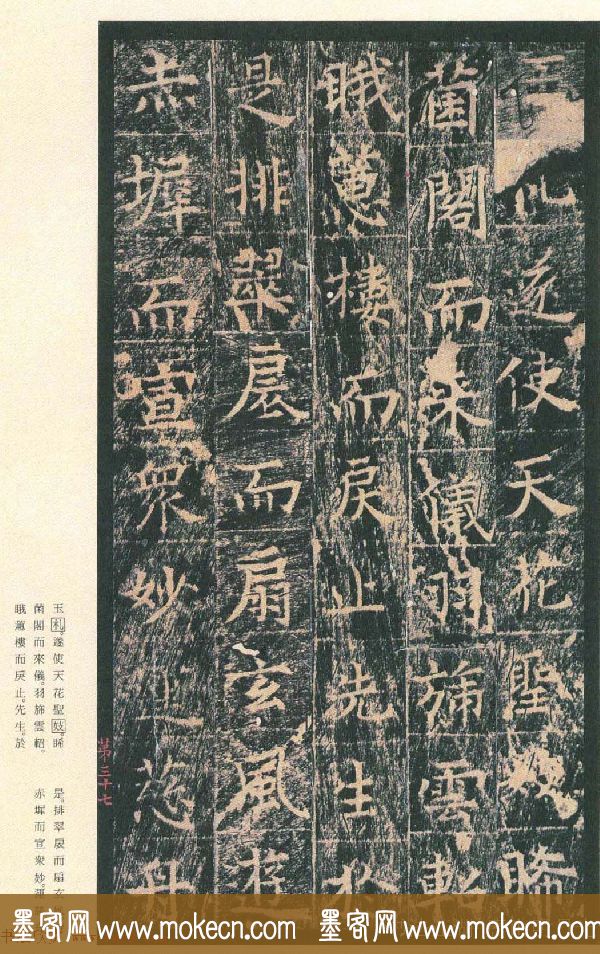 玉札遂使天花聖睎
菌閣而來儀羽旆雲軺
睋蕙樓而戾止先生於
是排翠扆而扇玄風遊
赤墀而宣衆妙慈舟
第三十七
玉札。遂使天花聖妓。睎
菌閣而來儀。羽旆雲軺。
睋蕙樓而戾止。先生。於
是。排翠扆而扇玄
赤墀而宣衆妙。
墨客网 www.mokecn.com 墨客网 www.mokecn.com